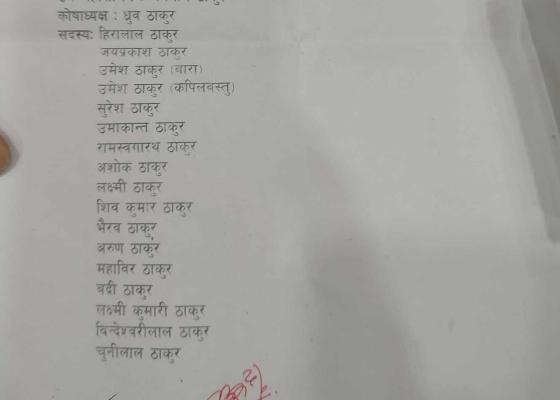 कोषाध्यक्ष : ध्रुव ठाकुर
सदस्यः हिरालाल ठाकुर
जयप्रकाश ठाकुर
उमेश ठाकुर (बारा)
उमेश ठाकुर (कपिलवस्तु)
सुरेश ठाकुर
उमाकान्त ठाकुर
रामस्वगारथ ठाकुर
अशोक ठाकुर
लक्ष्मी ठाकुर
शिव कुमार ठाकुर
भैरव ठाकुर
अरुण ठाकुर
महाविर ठाकुर
बद्री ठाकुर
लक्ष्मी कुमारी ठाकुर
विन्देश्वरीलाल ठाकुर
चुनीलाल ठाकुर